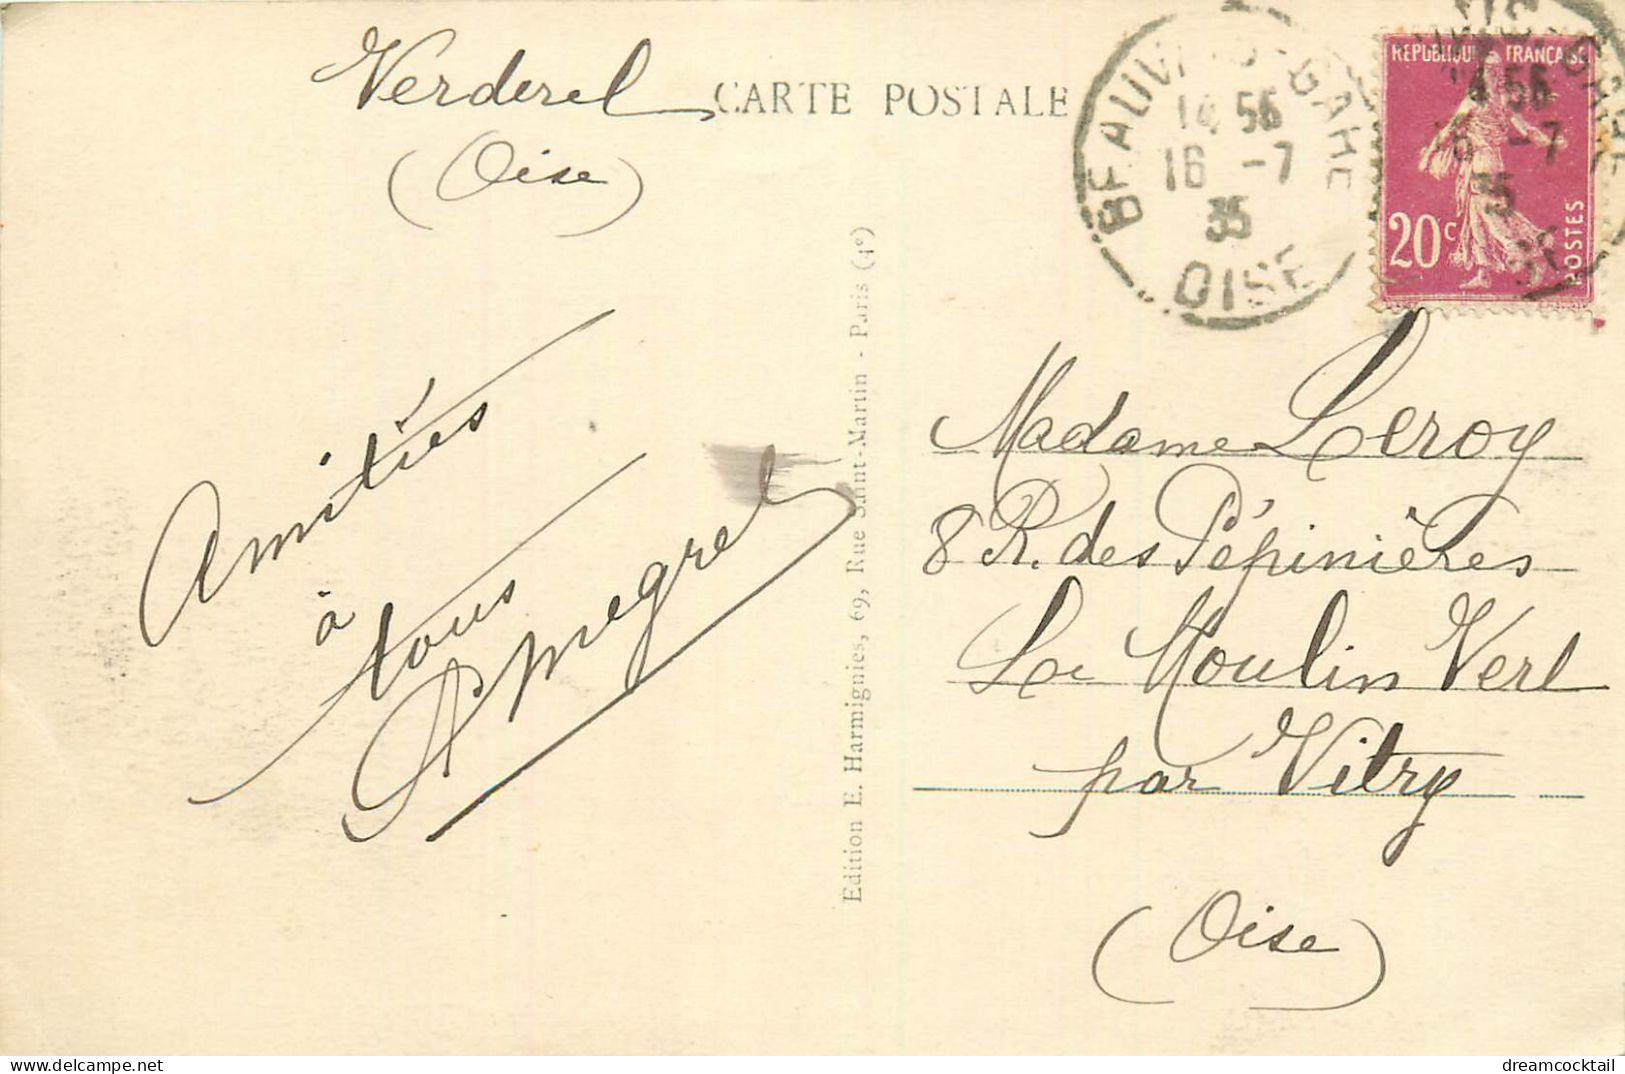 Verderel
(Oise)
CARTE POSTALE
BEAUVAIS-GARE
14 56
16 -7
35
OISE
REPUBLIQUE FRANÇAISE
20c
POSTES
Amitiés
à
tous
Edition E. Harmignies, 69, Rue Saint-Martin - Paris (4e)
Madame Leroy
8 R. des Pépinières
Le Moulin Vert
par Vitry
(Oise)
delcampe.net
dreamcocktail